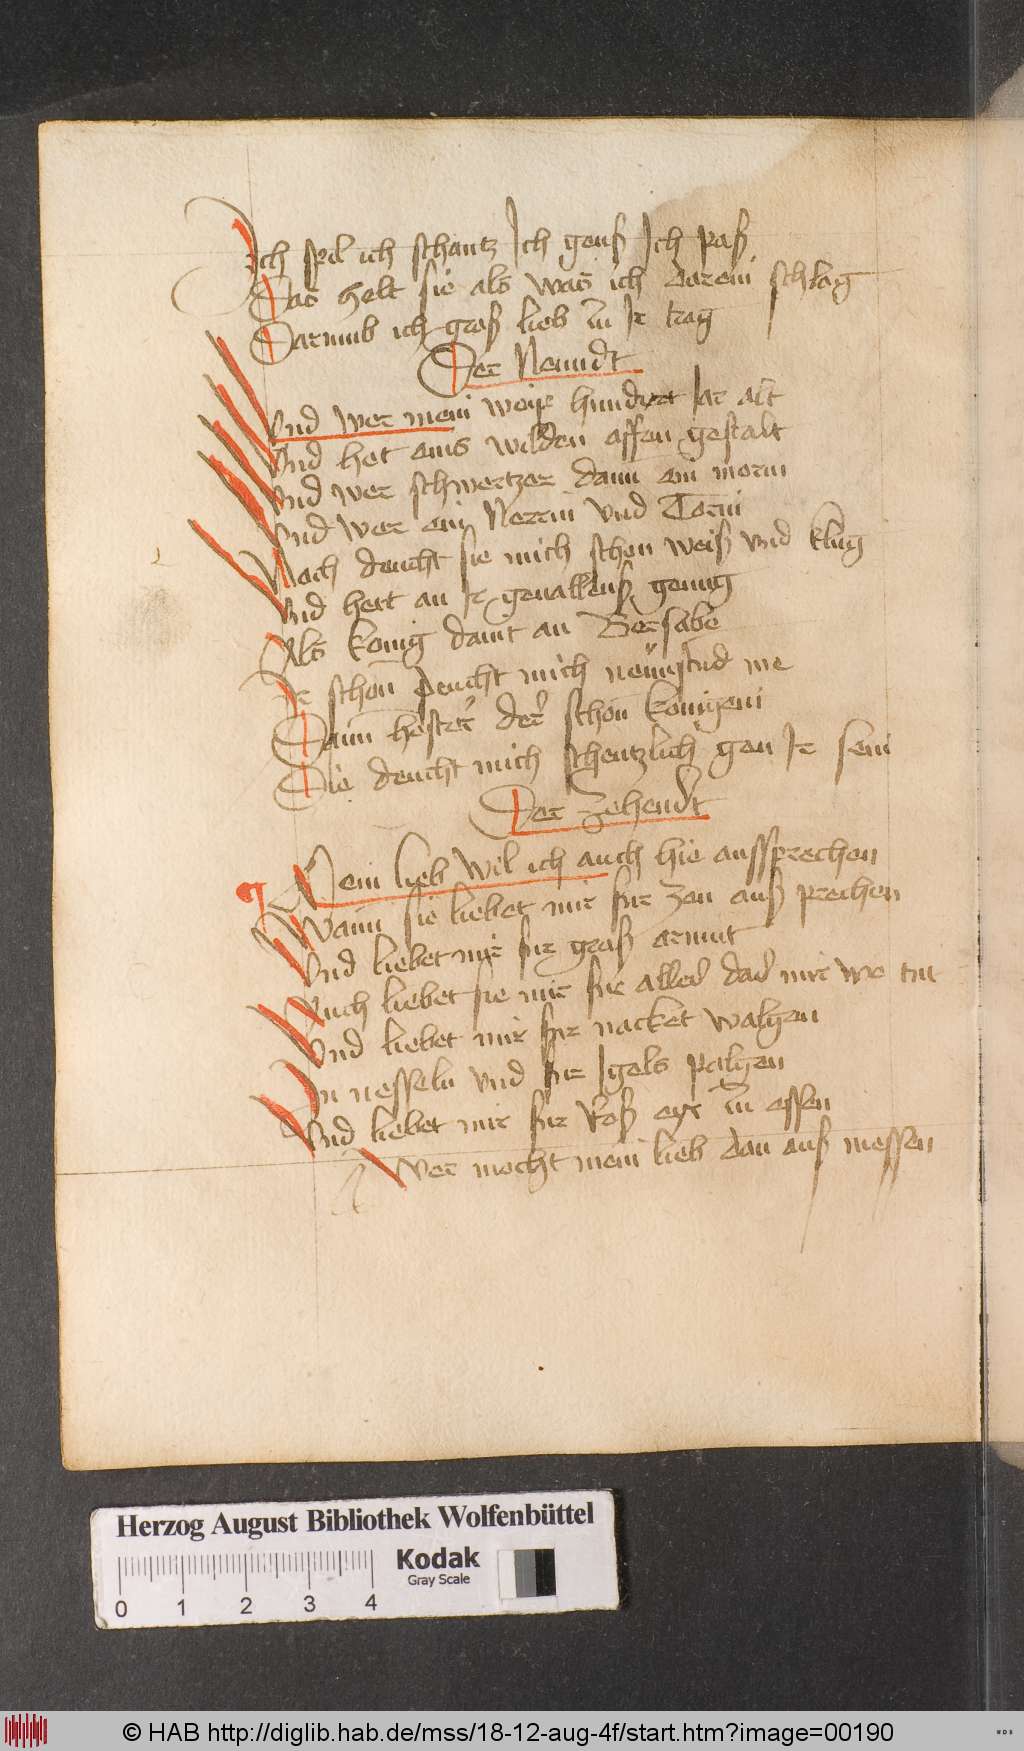 Ich spil ich schantz Ich genß Ich paß
Das helt sie als was ich darein schlag
Darumb ich groß lieb zu Ir trag
Der Neundt
Vnd wer mein weip hundert Jar alt
Vnd het eins wilden affen gestalt
Vnd wer schwertzer dann ein morin
Vnd wer ein Norrin vnd Torin
Noch deucht sie mich schon weiß vnd klug
Vnd hett an Ir geuallenß genug
Als konig dauit an Bersabe
Ir schon deucht mich me
Dann hester der schon konigein
Die deucht mich schentzlich gen Ir sein
Der Zehendt
Mein lieb wil ich auch hie aussprechen
Wann sie liebet mir fur zen auß prechen
Vnd liebet mir fur groß armut
Auch liebet sie mir fur alles das mir we tut
Vnd liebet mir fur nacket walgen
In nesseln vnd fur Igels palgen
Vnd liebet mir fur Roß eyr zu essen
Wer mocht mein lieb dan auß messen
Herzog August Bibliothek Wolfenbüttel
Kodak
Gray Scale
0 1 2 3 4
© HAB http://diglib.hab.de/mss/18-12-aug-4f/start.htm?image=00190
WDB